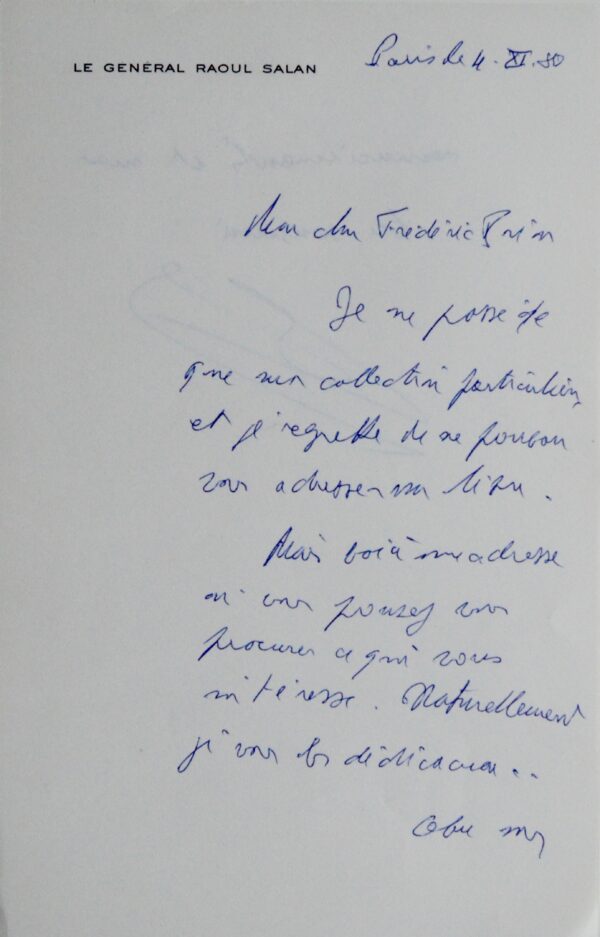 LE GÉNÉRAL RAOUL SALAN
Paris le 4. XI. 80
Mon cher Frédéric
Je ne possède
que ma collection particulière
et je regrette de ne pouvoir
vous adresser un livre.
Mais voici une adresse
où vous pouvez vous
procurer ce qui vous
intéresse. Naturellement
je vous les dédicacerai..